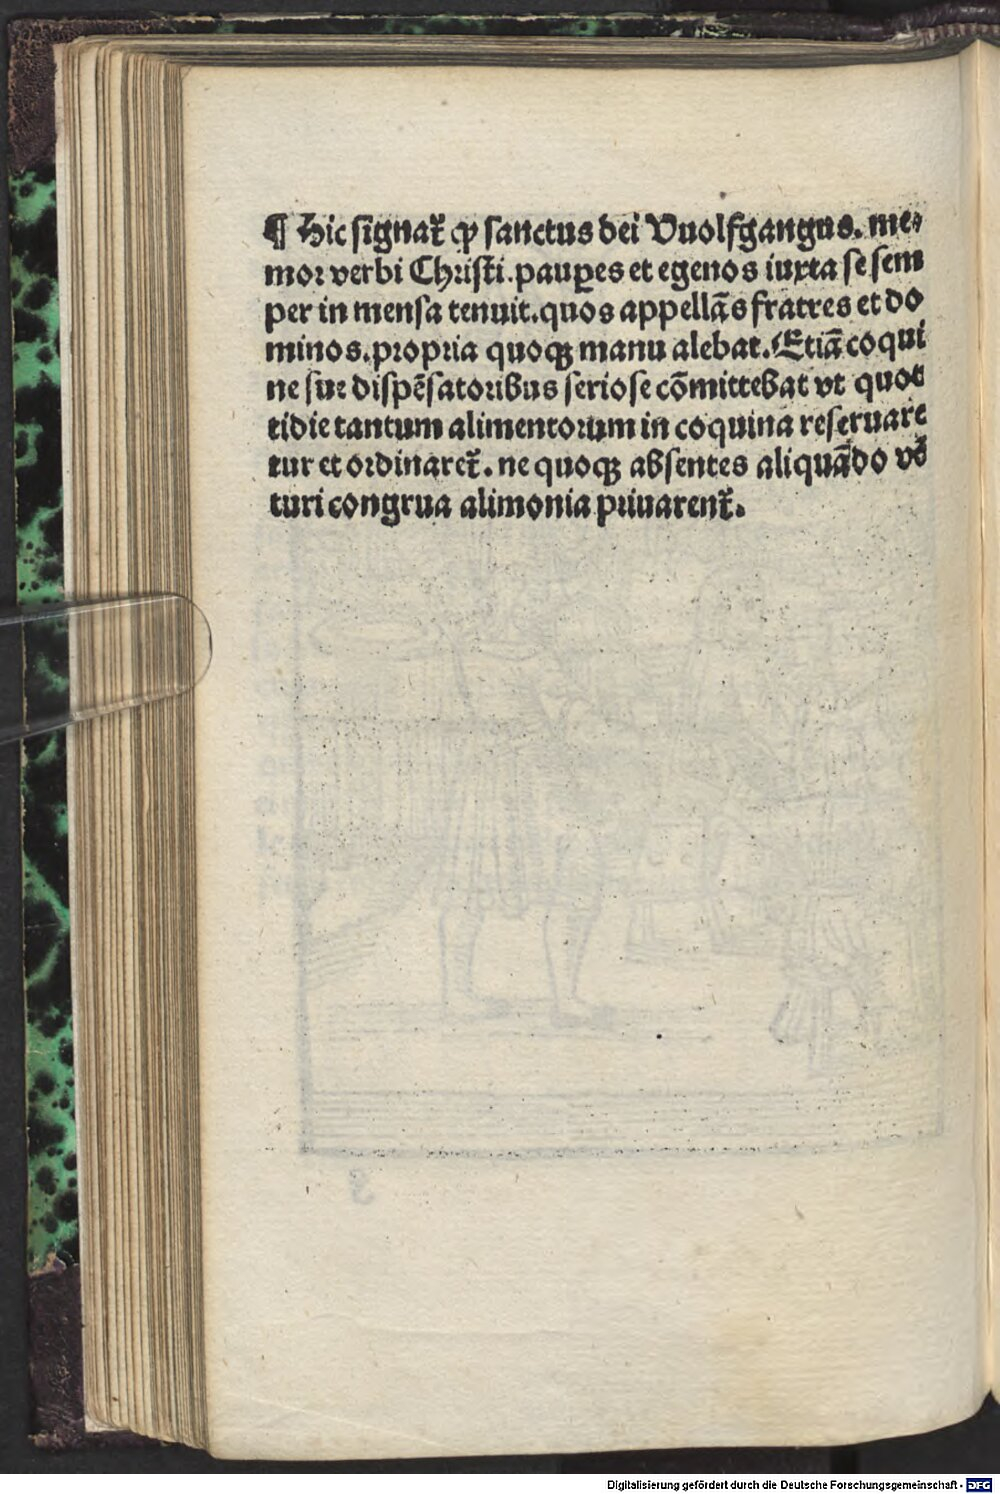 ¶ Hic signat̃ ꝙ sanctus dei Vuolfgangus. me⸗
mor verbi Christi. pauꝑes et egenos iuxta se sem
per in mensa tenuit. quos appellãs fratres et do
minos. propria quoqꝫ manu alebat. Etiã coqui
ne sue dispẽsatoribus seriose cõmittebat vt quot
tidie tantum alimentorum in coquina reseruare
tur et ordinaret̃. ne quoqꝫ absentes aliquãdo vẽ
turi congrua alimonia priuarent̃.
Digitalisierung gefördert durch die Deutsche Forschungsgemeinschaft - DFG